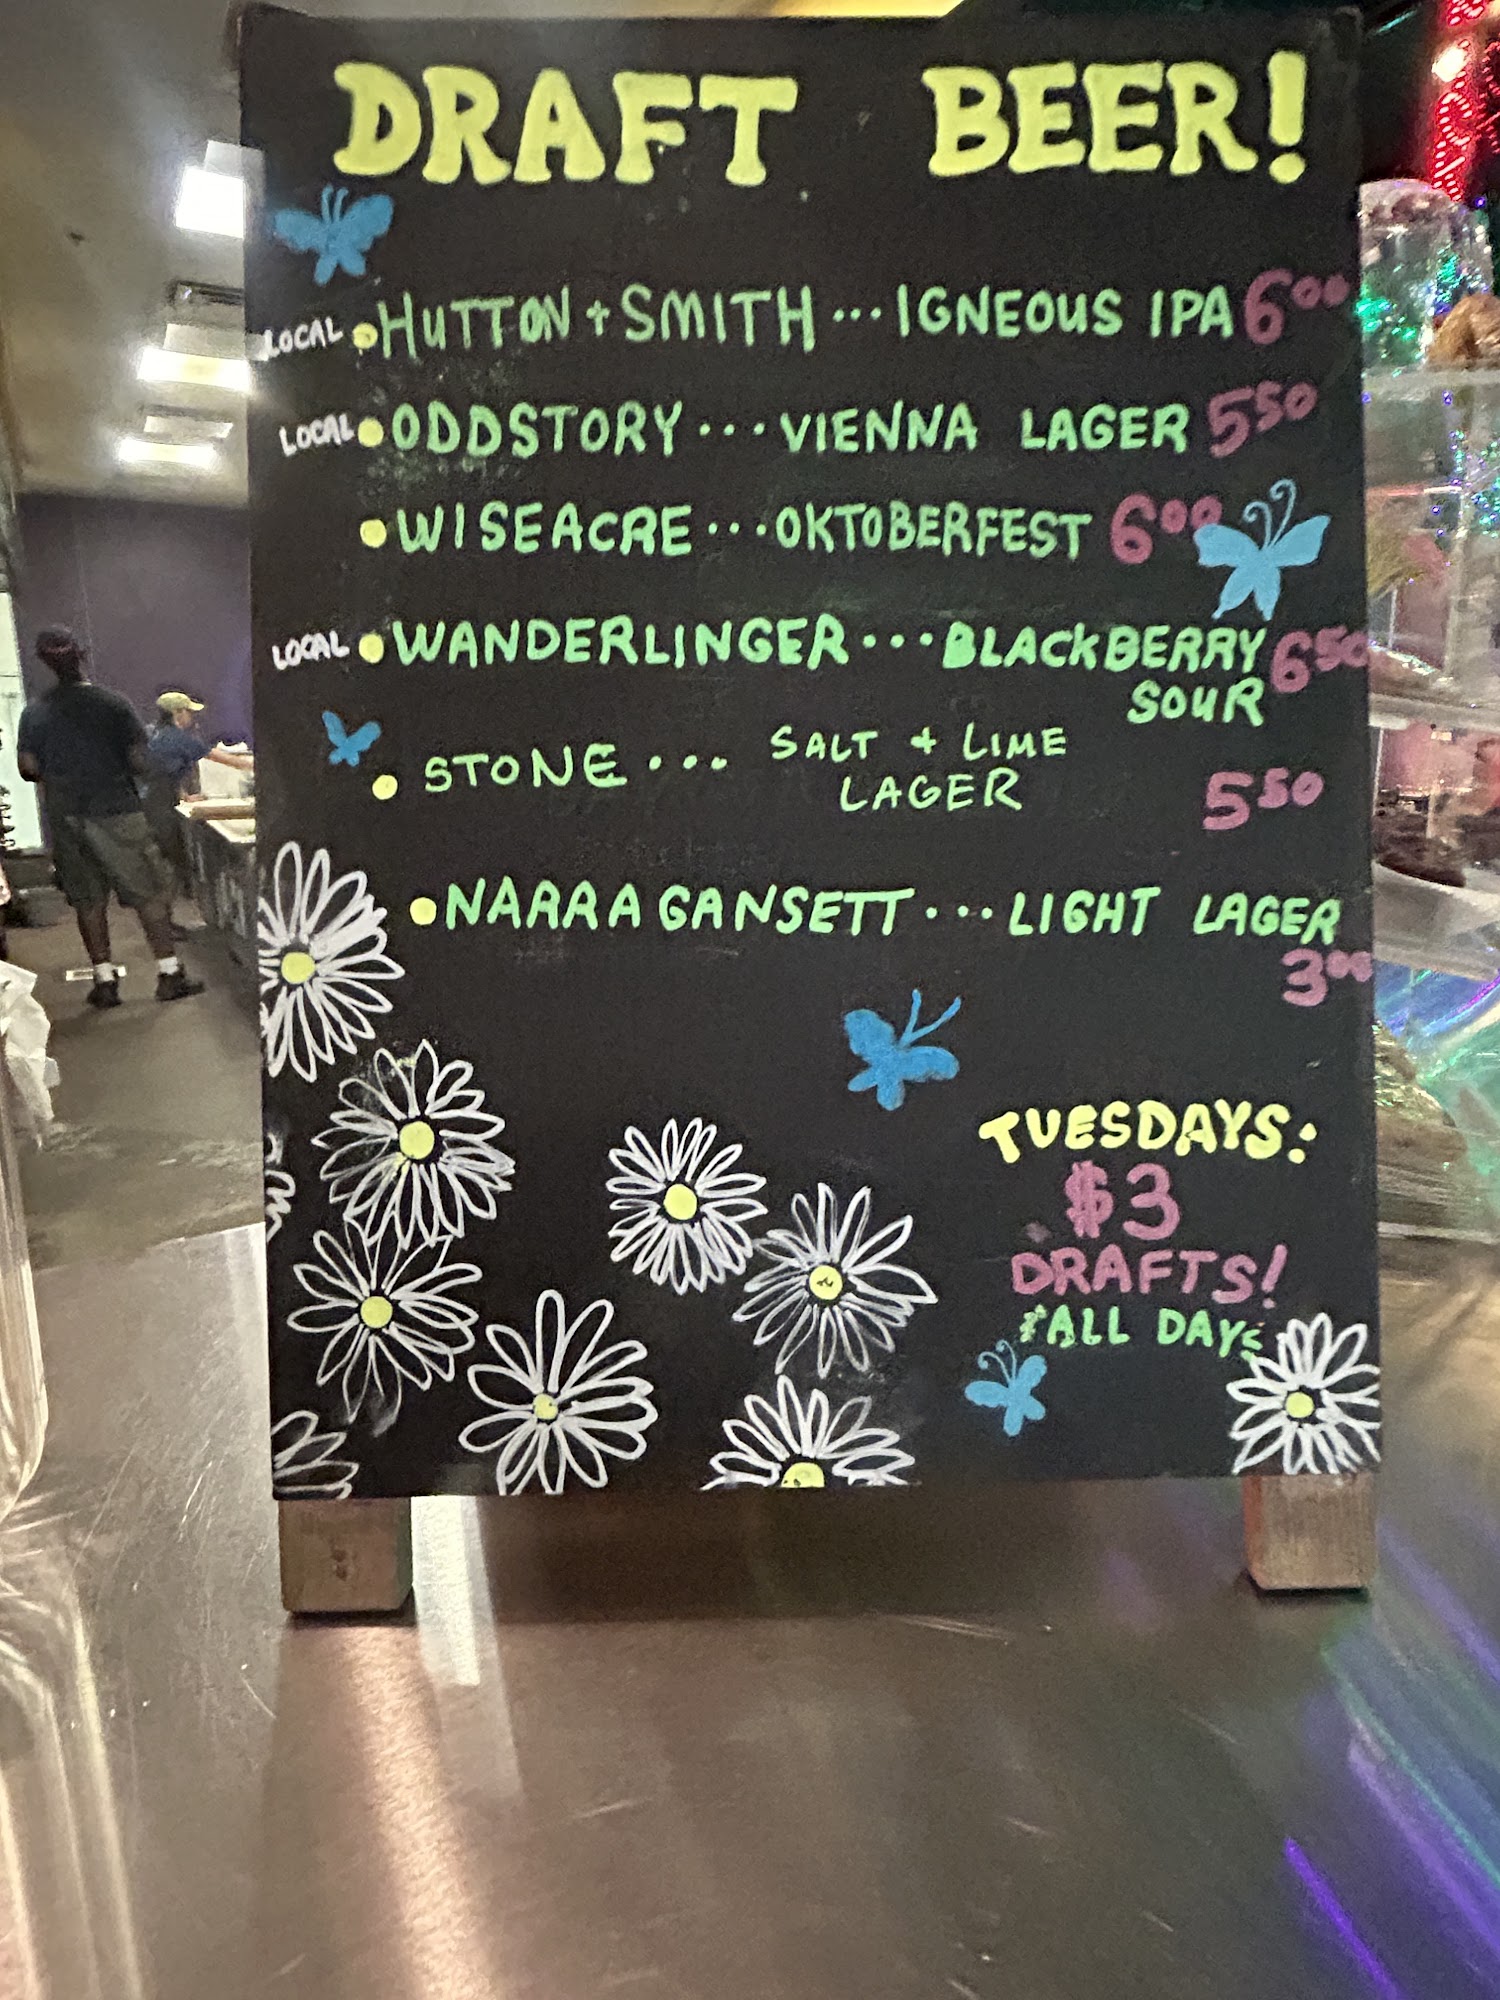 DRAFT BEER!
LOCAL • HUTTON + SMITH ... IGNEOUS IPA 6⁰⁰
LOCAL • ODDSTORY ... VIENNA LAGER 5⁵⁰
• WISEACRE ... OKTOBERFEST 6⁰⁰
LOCAL • WANDERLINGER ... BLACKBERRY 6⁵⁰
SOUR
• STONE ... SALT + LIME
LAGER 5⁵⁰
• NARRAGANSETT ... LIGHT LAGER
3⁰⁰
TUESDAYS:
$3
DRAFTS!
*ALL DAY*